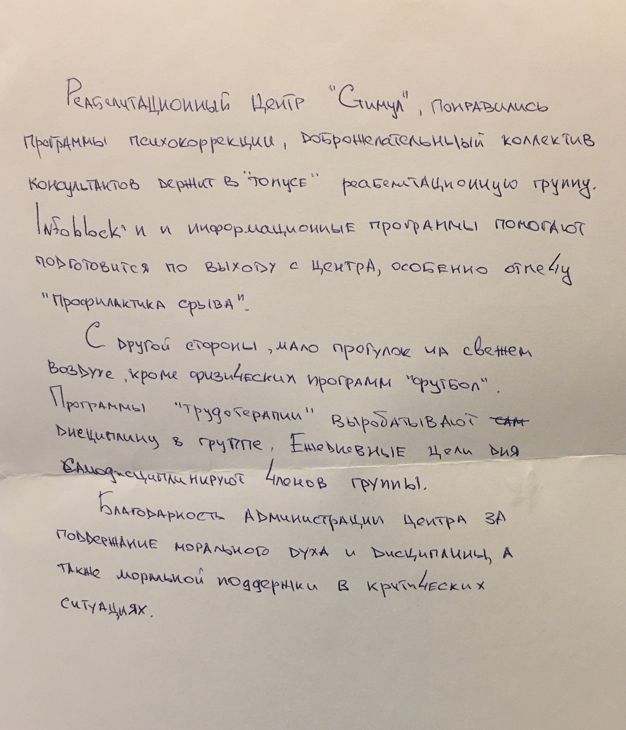 Реабелитационный центр "Стимул", понравились
программы психокоррекции, доброжелательныый коллектив
консультантов держит в "тонусе" реабелитационную группу.
Infoblock'и и информационные программы помогают
подготовится по выходу с центра, особенно отмечу
"Профилактика срыва".
С другой стороны, мало прогулок на свежем
воздухе, кроме физических программ "футбол".
Программы "трудотерапии" вырабатывают сам
дисциплину в группе. Ежедневные цели дня
самодисциплинируют членов группы.
Благодарность администрации центра за
поддержание морального духа и дисциплины, а
также моральной поддержки в критических
ситуациях.